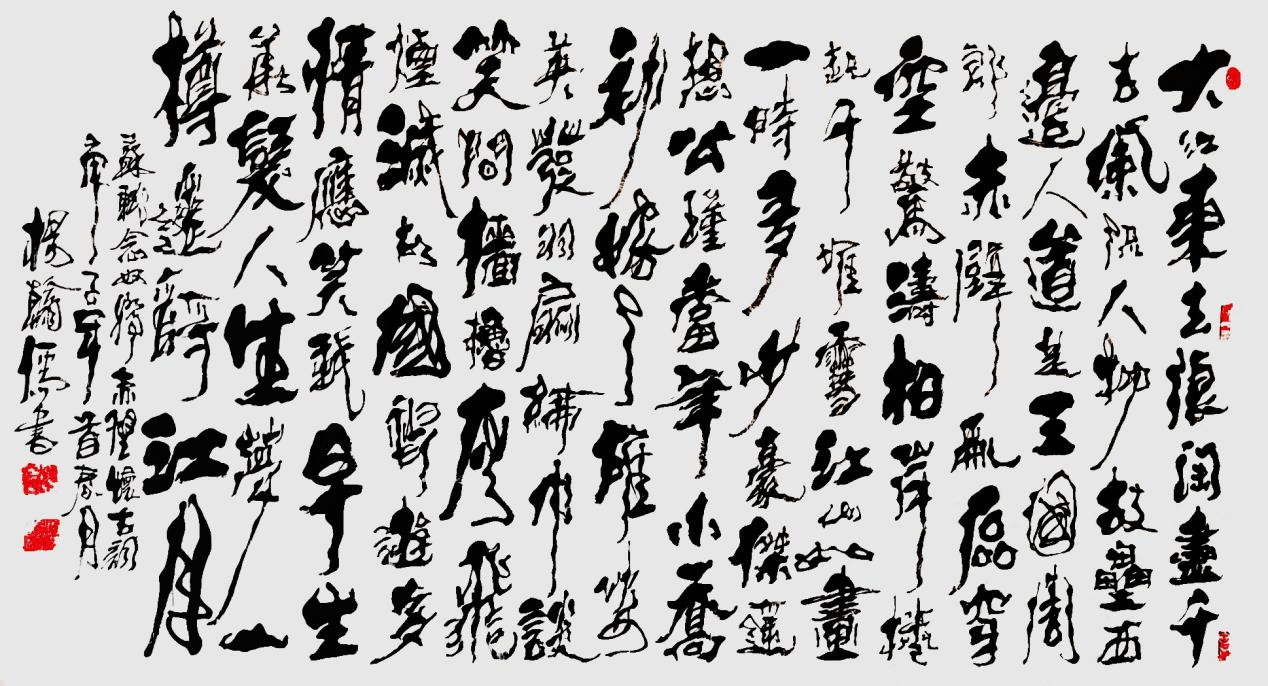 大江東去浪淘盡千
古風流人物故壘西
邊人道是三國周
郎赤壁亂石穿
空驚濤拍岸捲
起千堆雪江山如畫
一時多少豪傑遙
想公瑾當年小喬
初嫁了雄姿
英發羽扇綸巾談
笑間檣櫓灰飛
煙滅故國神遊多
情應笑我早生
華髮人生夢一
樽還酹江月
蘇軾念奴嬌赤壁懷古詞
庚子年首春月
楊翰儒書